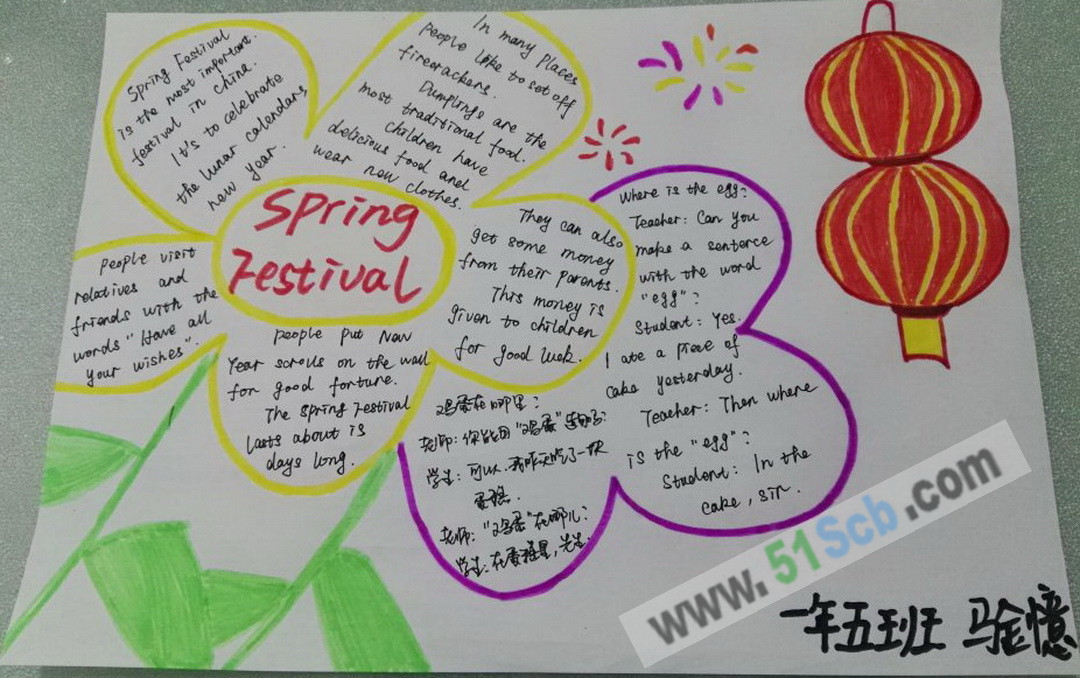 Spring Festival
is the most important
festival in China.
It's to celebrate
the lunar calendars
new year.
In many places
people like to set off
firecrackers.
Dumplings are the
most traditional food.
children have
delicious food and
wear new clothes.
Spring
Festival
They can also
get some money
from their parents.
This money is
given to children
for good luck.
people visit
relatives and
friends with the
words "Have all
your wishes".
people put New
Year scrolls on the wall
for good fortune.
The Spring Festival
lasts about 15
days long.
Where is the egg?
Teacher: Can you
make a sentence
with the word
"egg"?
Student: Yes.
I ate a piece of
cake yesterday.
Teacher: Then where
is the "egg"?
Student: In the
cake, sir.
鸡蛋在哪里?
老师:你能用"鸡蛋"造句吗?
学生:可以,我昨天吃了一块
蛋糕.
老师:"鸡蛋"在哪儿?
学生:在蛋糕里,先生.
www.51Scb.com
一年五班 马金憶